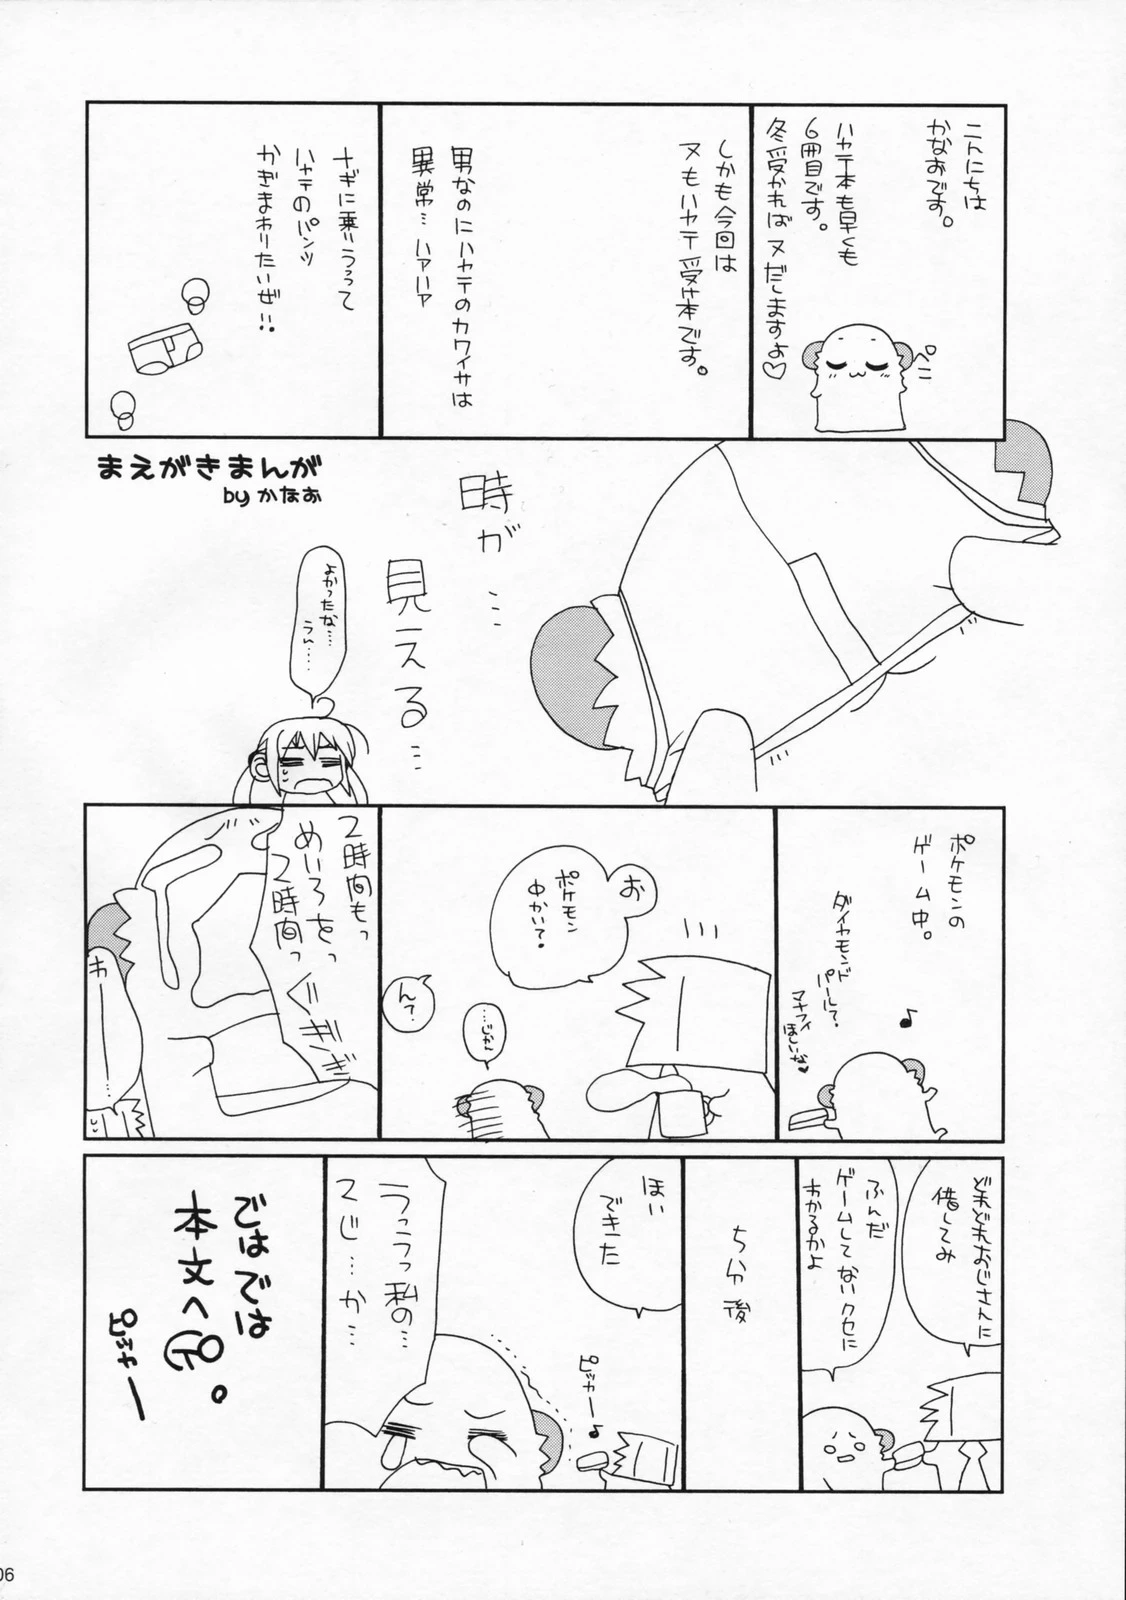 こんにちは
かなおです。
ハヤテ本も早くも
6冊目です。
冬受かれば又だしますよ♡
ぺこ
しかも今回は
又もハヤテ受け本です。
男なのにハヤテのカワイサは
異常…ハアハア
ナギに乗りうつって
ハヤテのパンツ
かぎまわりたいぜ!!
まえがきまんが
by かなお
時が…
見える…
よかったな…
うん……
ポケモンの
ゲーム中。
ダイヤモンド
パールで。
マナフィ
ほしいな♥
♪
お
ポケモン
中かい?
…じかん
んで
2時間もっ
めいろをっ
2時間っ
ぐぎぎ
わ
どれどれおじさんに
借してみ
ふんだ
ゲームしてないクセに
わかるかよ
5分後
ほい
できた
ピッカー♪
うっうっ私の…
スじ…か…
ではでは
本文へ
ピッカー
06